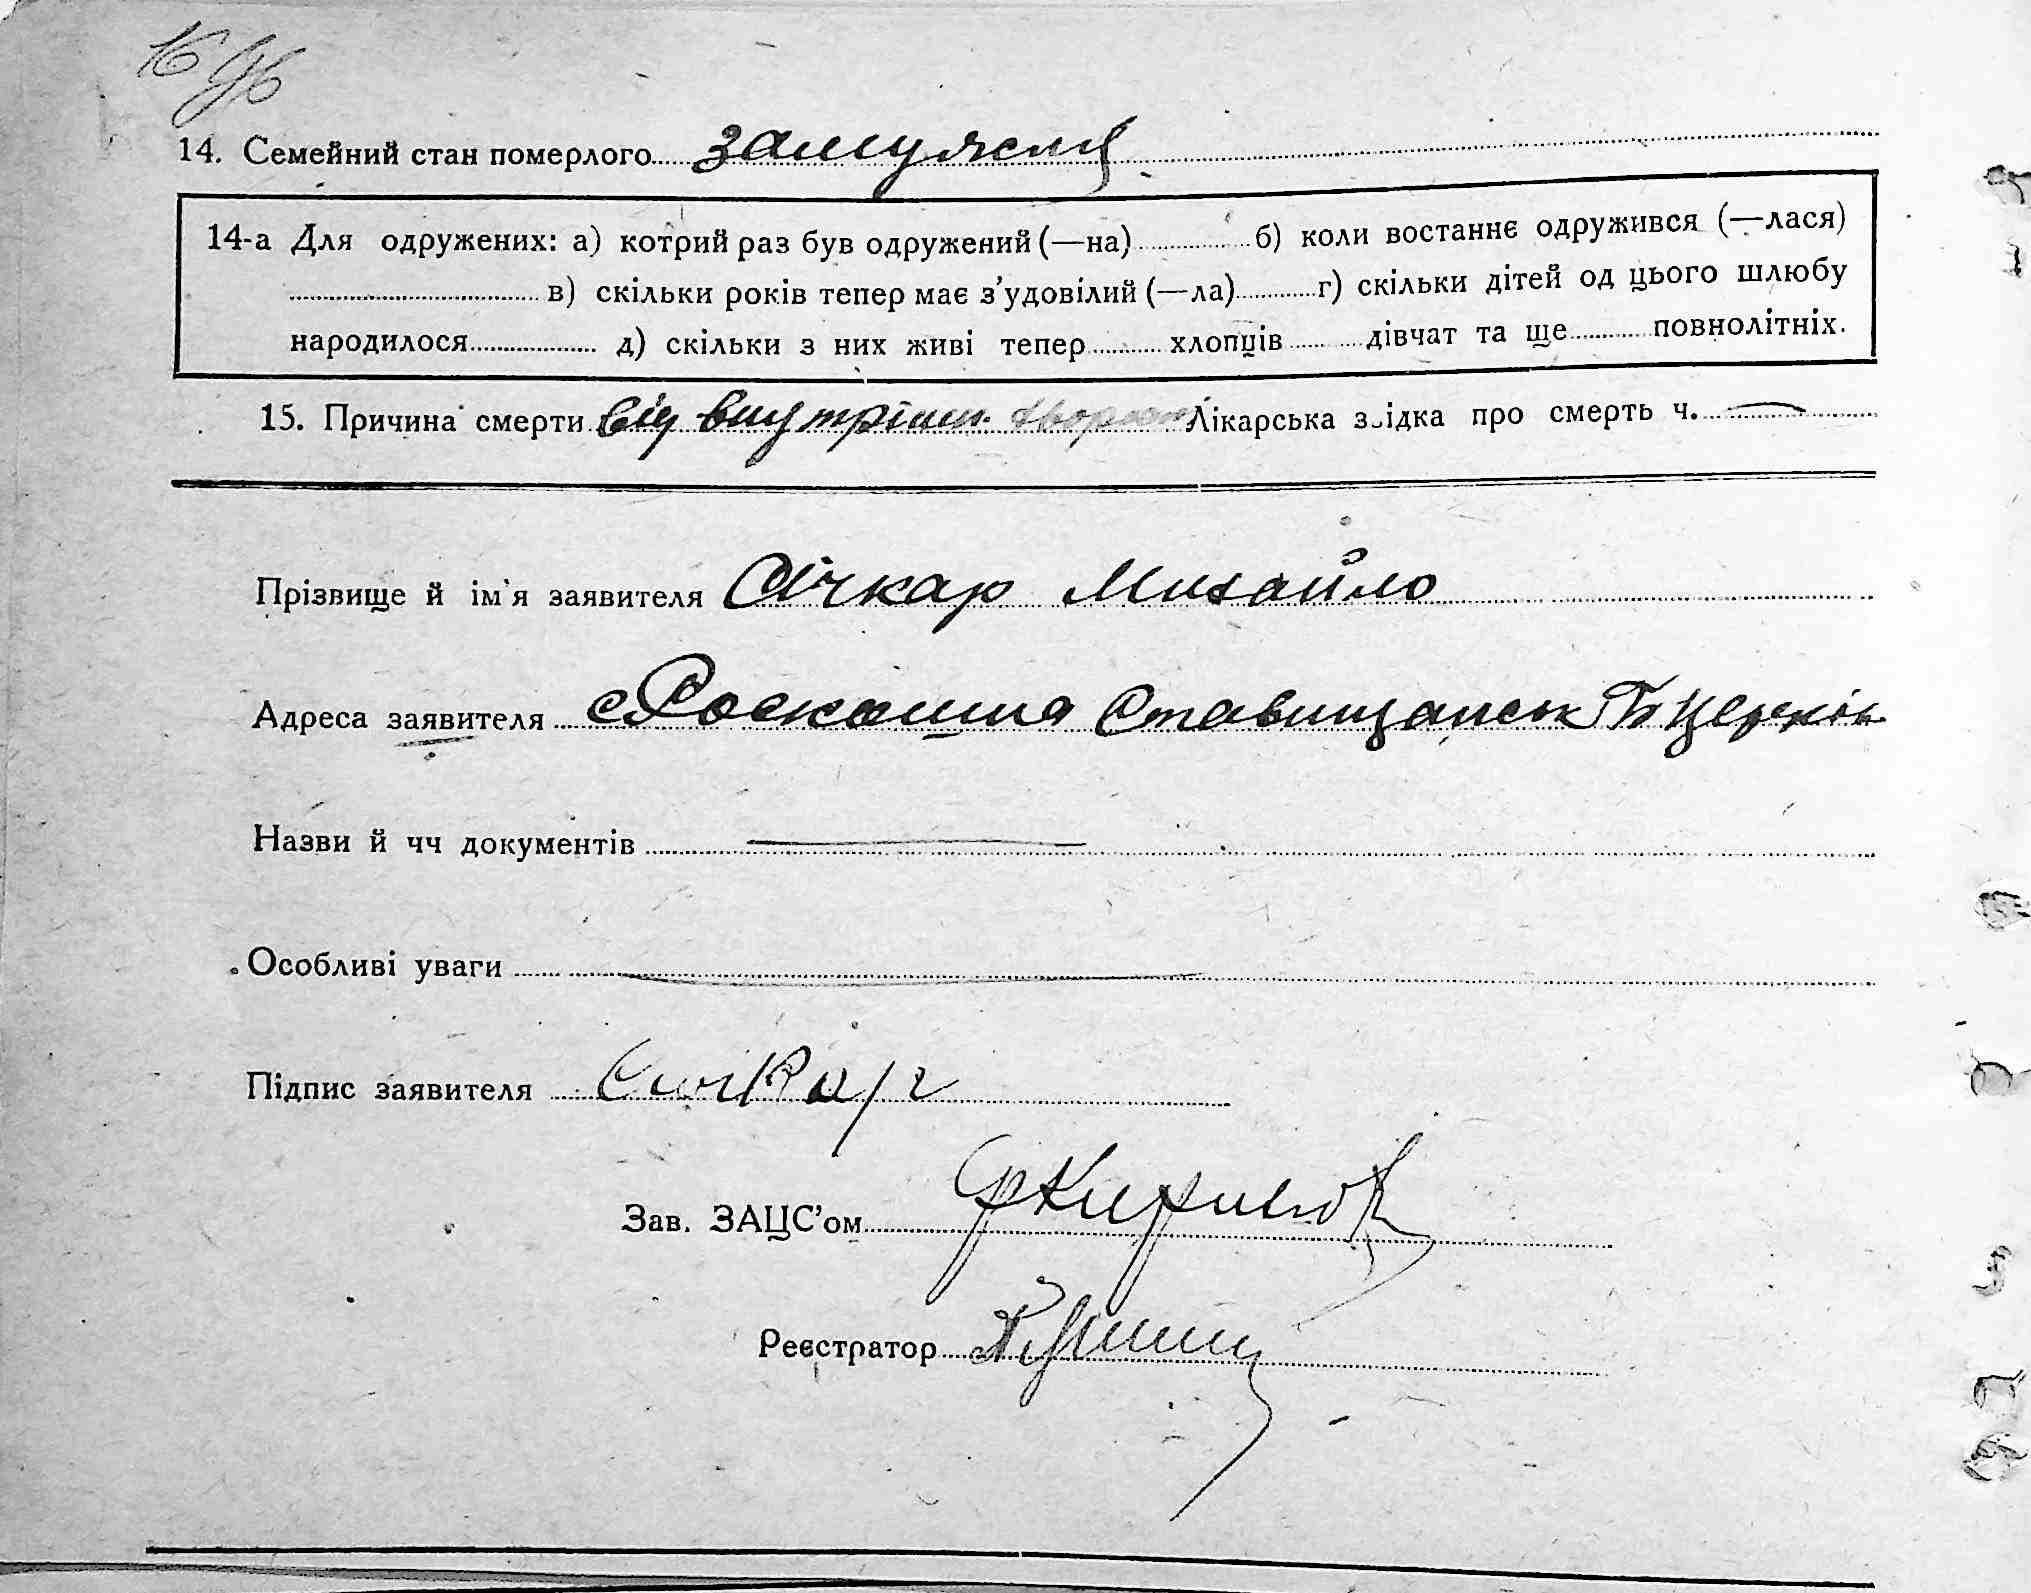 16
96
14. Семейний стан померлого замужня
14-а Для одружених: а) котрий раз був одружений (—на) б) коли востаннє одружився (—лася)
в) скільки років тепер має з'удовілий (—ла) г) скільки дітей од цього шлюбу
народилося д) скільки з них живі тепер хлопців дівчат та ще повнолітніх.
15. Причина смерти від внутрішн. хвороб Лікарська звідка про смерть ч. —
Прізвище й ім'я заявителя Січкар Михайло
Адреса заявителя с Роскошня Ставищанськ Б Церків
Назви й чч документів —
Особливі уваги —
Підпис заявителя Сичкар
Зав. ЗАЦС'ом
Реєстратор